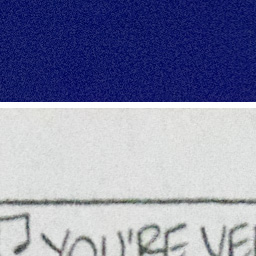 ♫ YOU'RE VE